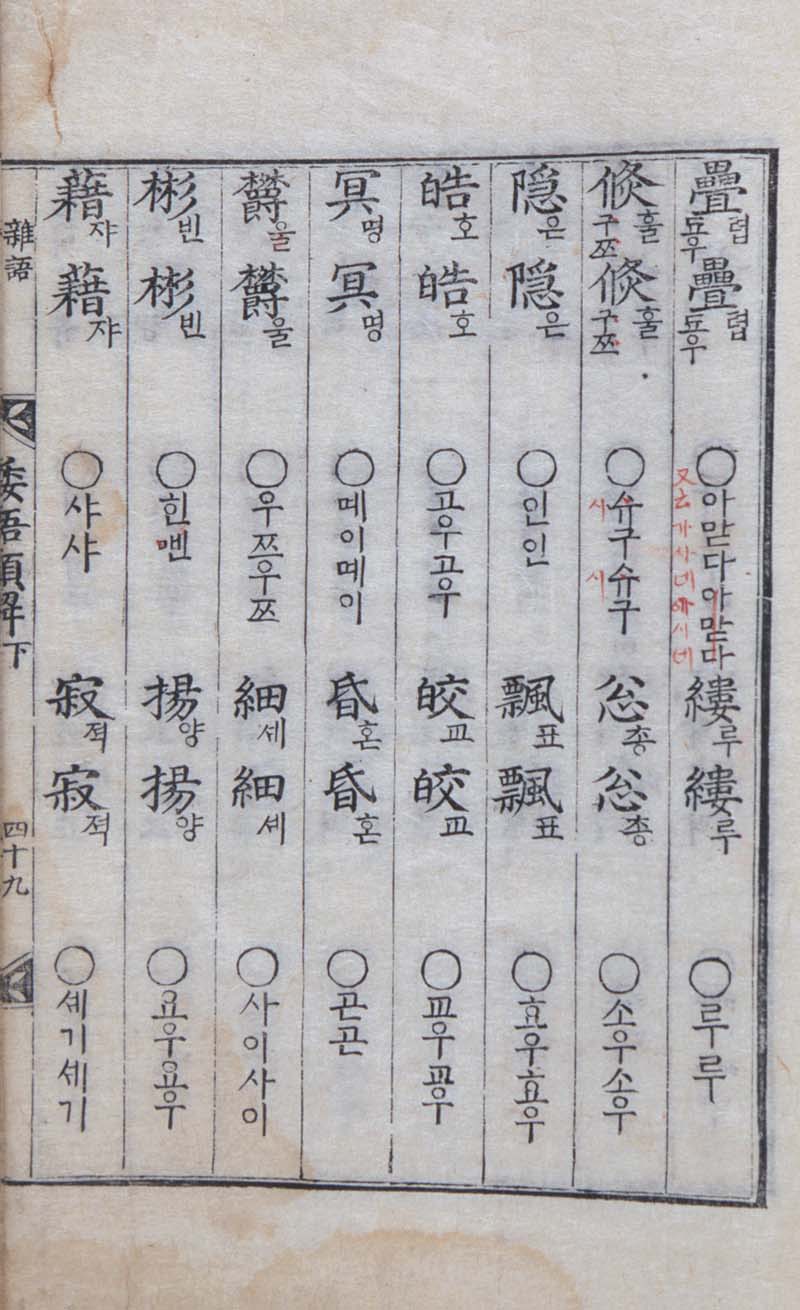 疊렵됴우疊렵됴우○아맏다아맏다縷루縷루○루루
又云가사네가사네
倐훌구쯔倐훌구쯔○슈구슈구忩총忩총○소우소우
시시
隠은隠은○인인飄표飄표○효우효우
皓호皓호○고우고우皎교皎교○교우교우
冥명冥명○몌이몌이昏혼昏혼○곤곤
欝울欝울○우쯔우쯔細셰細셰○사이사이
彬빈彬빈○힌몐揚양揚양○요우요우
藉쟈藉쟈○샤샤寂젹寂젹○셰기셰기
雜語
倭語類解下
四十九